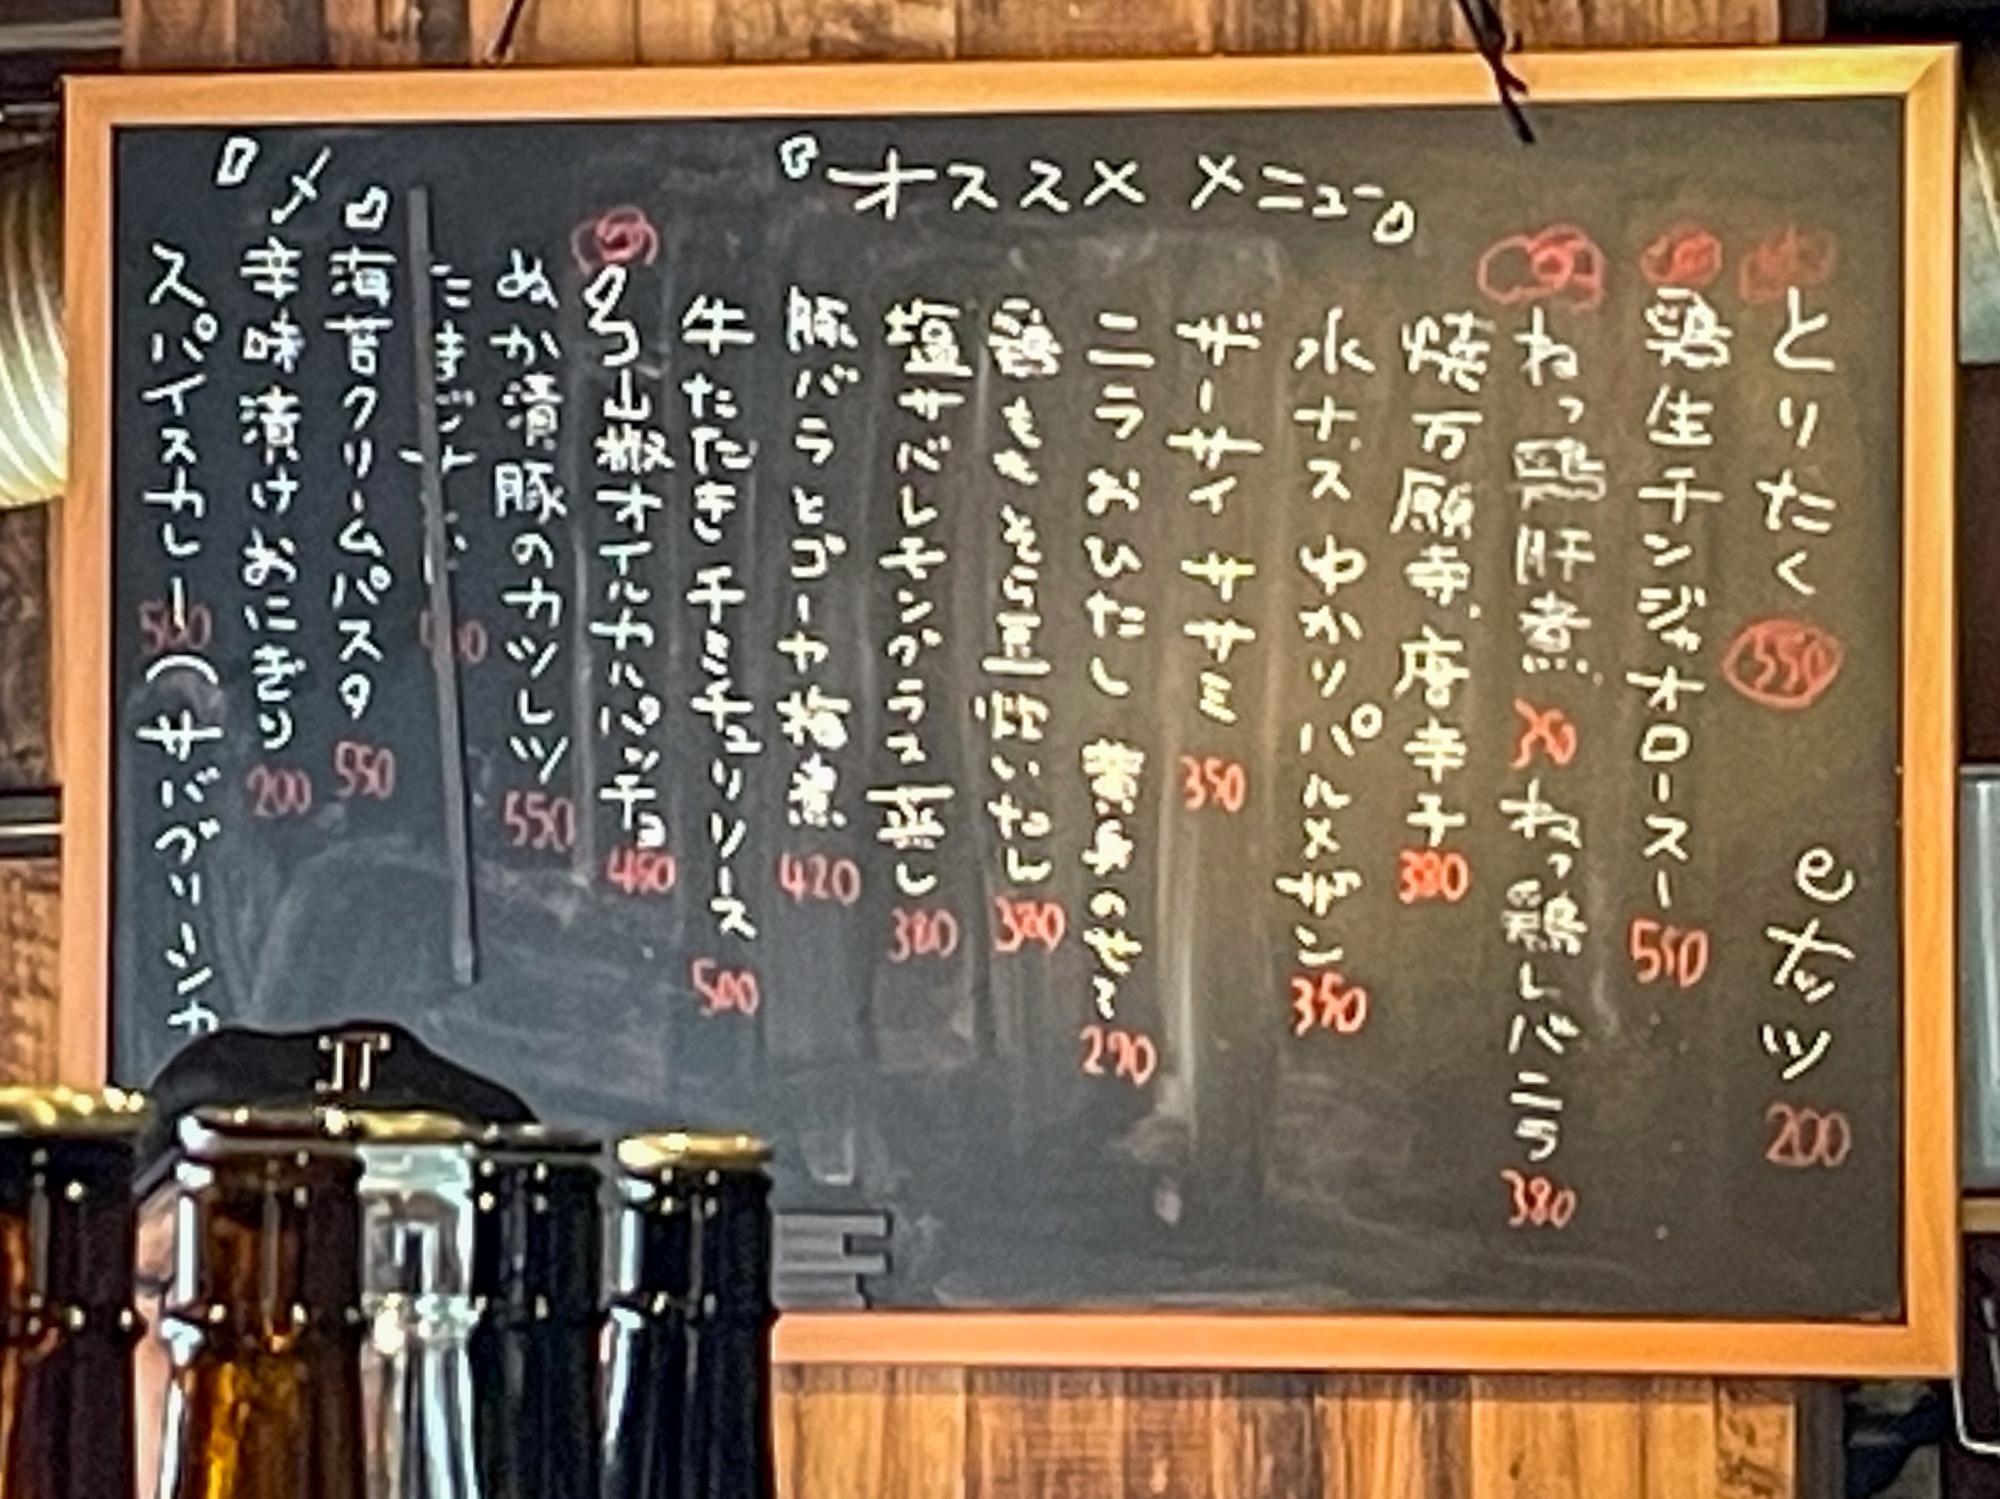 『オススメ メニュー』
とりたく 550 eナッツ 200
鶏生チンジャオロースー 550
ねっ鶏肝煮 ねっ鶏レバニラ 380
焼万願寺唐辛子 380
水ナス ゆかりパルメザン 350
ザーサイ ササミ 350
ニラおひたし 黄身のせて 290
鶏ももそら豆炊いたん 380
塩サバレモングラス蒸し 380
豚バラとゴーヤ梅煮 420
牛たたきチミチュリソース 500
山椒オイルカルパッチョ 450
ぬか漬豚のカツレツ 550
『〆』
海苔クリームパスタ 550
辛味漬けおにぎり 200
スパイスカレー 500